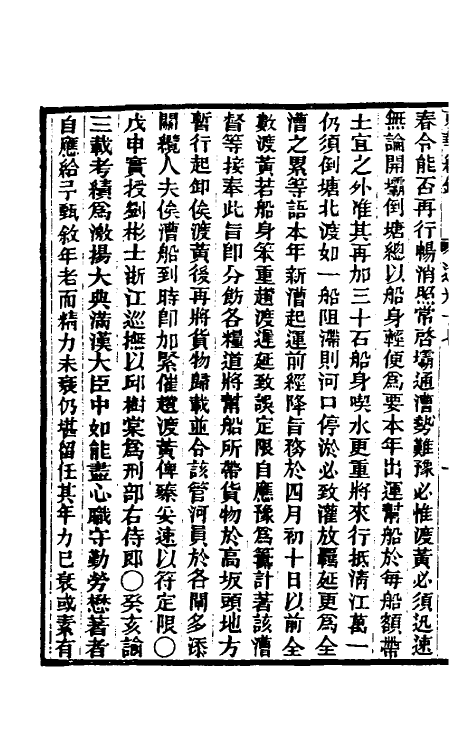 春令能否再行暢消照常啓壩通漕勢難豫必惟渡黃必須迅速
無論開壩倒塘總以船身輕便爲要本年出運幫船於每船額帶
土宜之外准其再加三十石船身喫水更重將來行抵清江萬一
仍須倒塘北渡如一船阻滯則河口停淤必致灌放羈延更爲全
漕之累等語本年新漕起運前經降旨務於四月初十日以前全
數渡黃若船身笨重趲渡遲延致誤定限自應豫爲籌計著該漕
督等接奉此旨卽分飭各糧道將幫船所帶貨物於高坂頭地方
暫行起卸俟渡黃後再將貨物歸載並令該管河員於各閘多添
關纜人夫俟漕船到時卽加緊催趲渡黃俾臻妥速以符定限〇
戊申實授劉彬士浙江巡撫以邱樹棠爲刑部右侍郞〇癸亥諭
三載考績爲激揚大典滿漢大臣中如能盡心職守勤勞懋著者
自應給予甄敘年老而精力未衰仍堪留任其年力已衰或素有